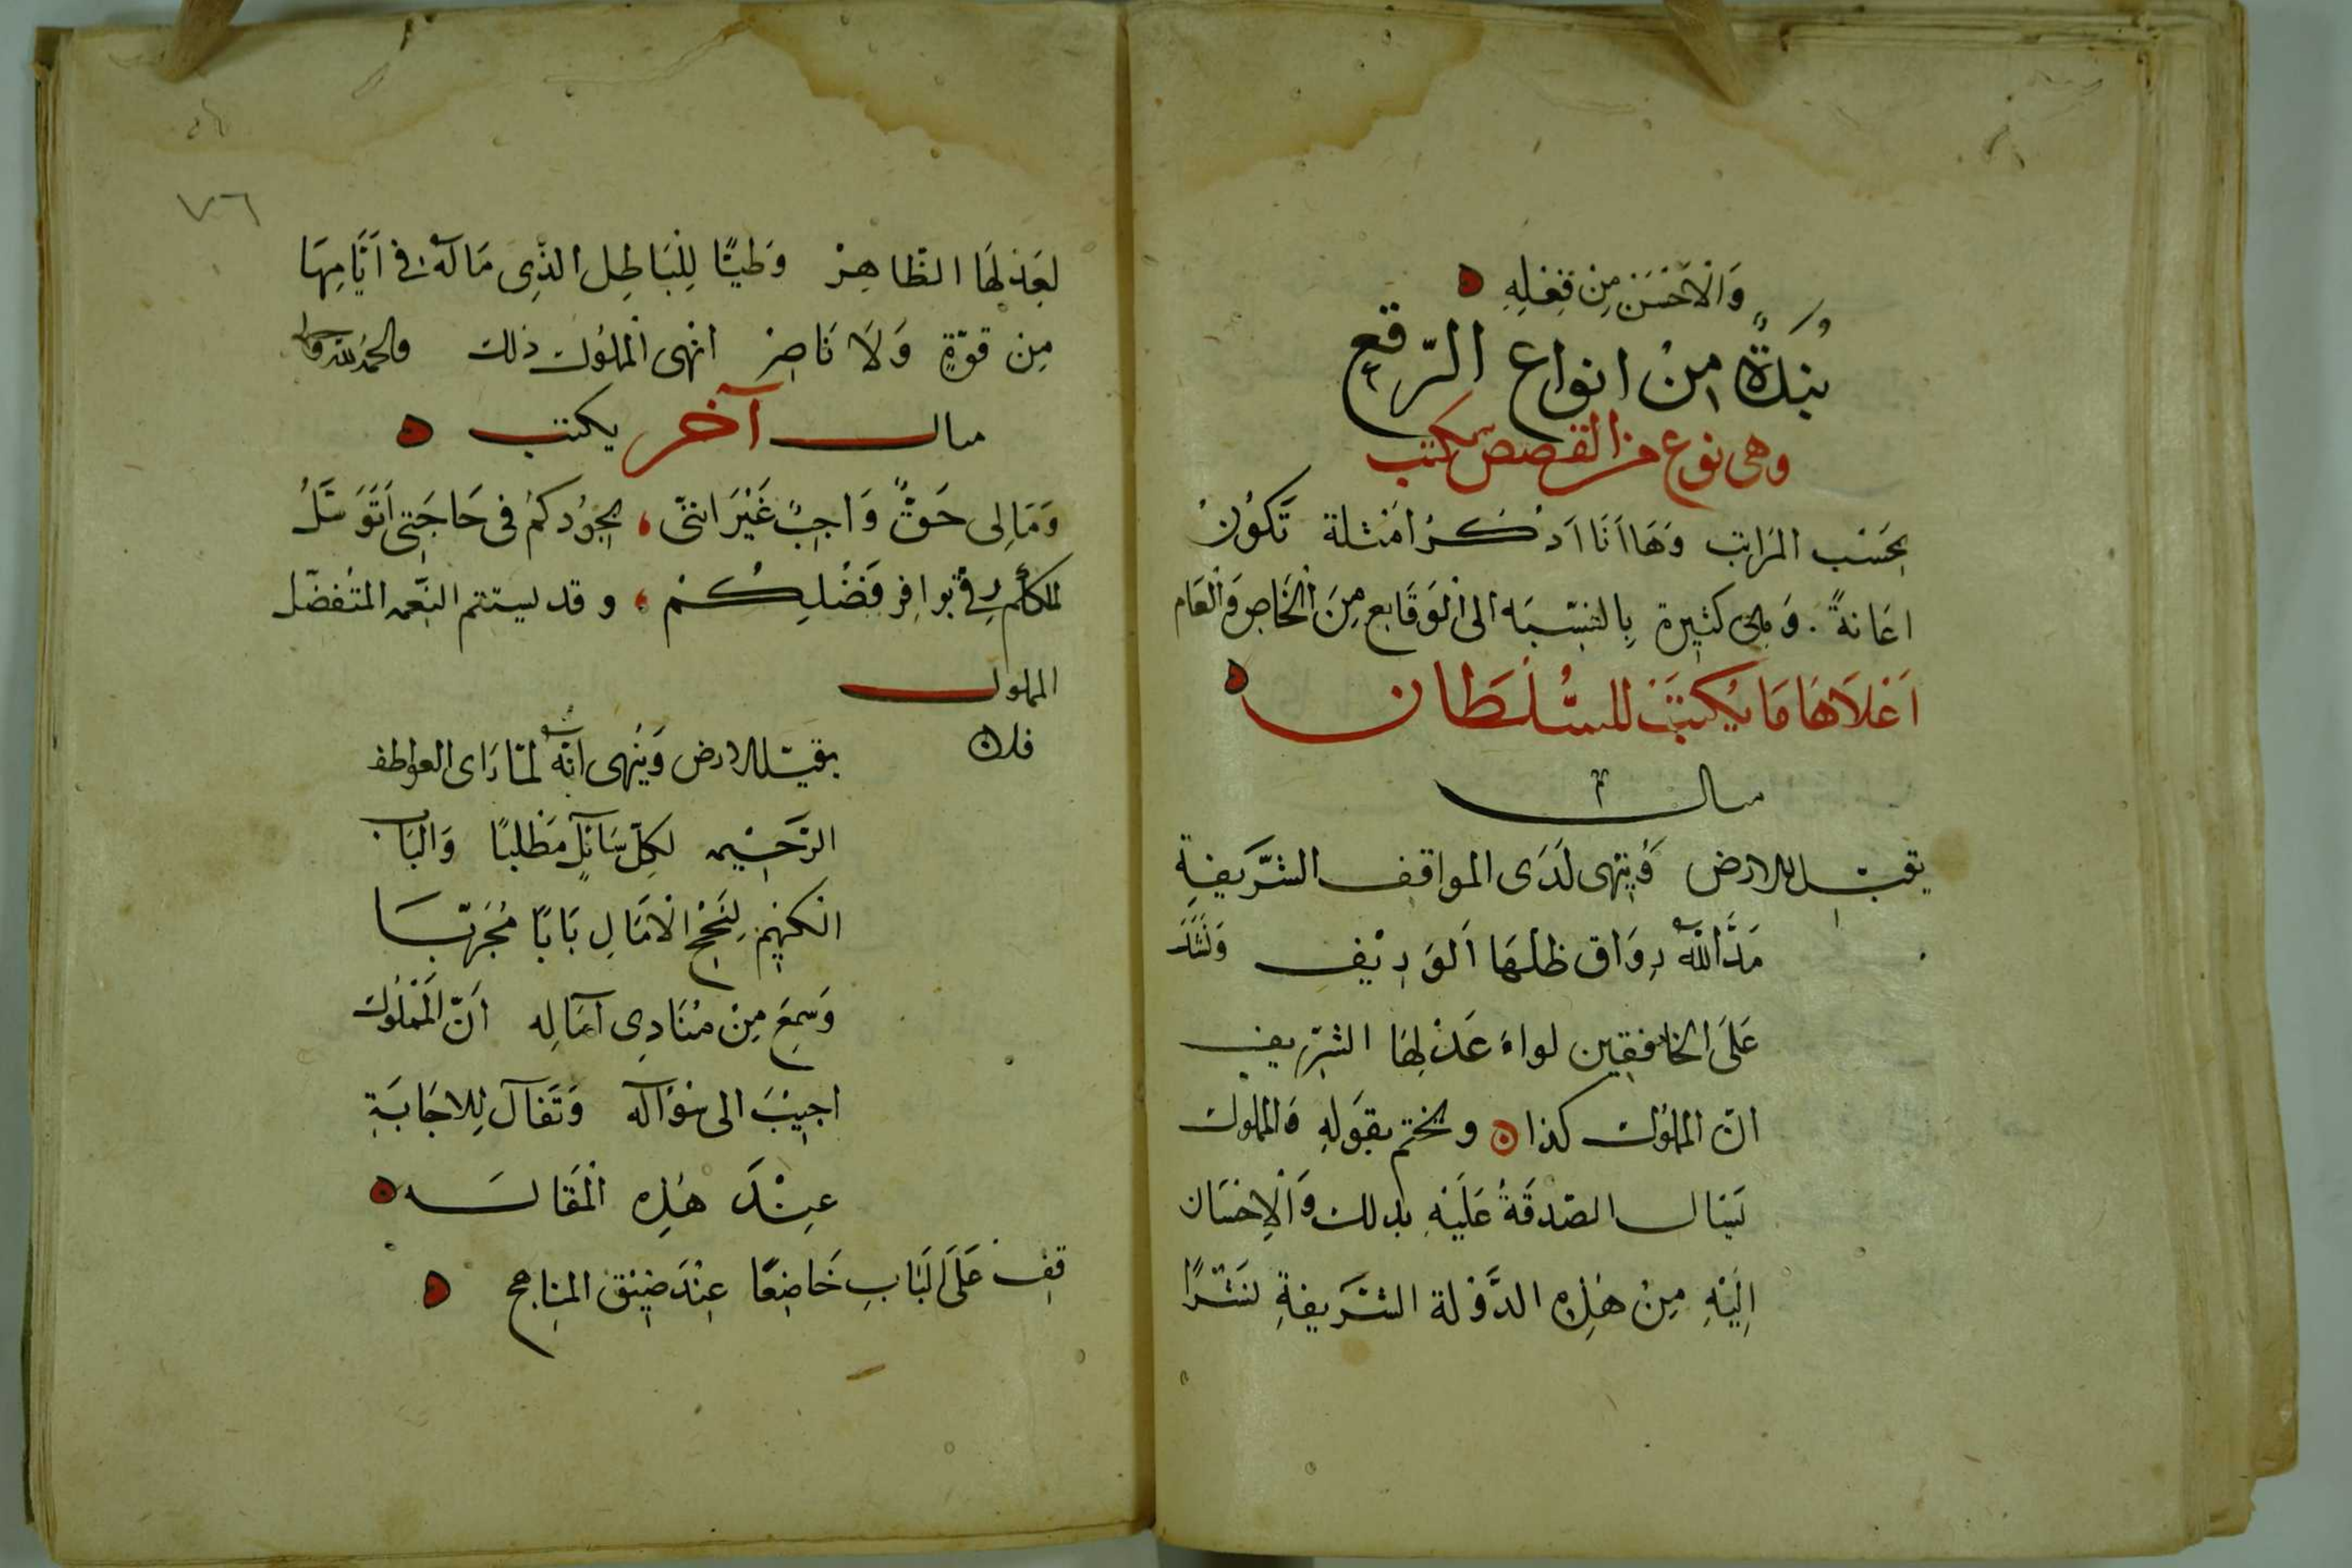 وَالْاَحْسَن مِن فِعْلِهِ
نُبْذَةٌ مِنْ انواع الرّقع
وهى نوع من القصص تكتب
بحَسَب المرَاتب وَهَا اَنَا اَذكُرُ امْثلة تَكُونُ
اعَانةً . وَهى كثيرة بِالنسْبَه الى الْوَقَايع مِنَ الْخَاص وَالْعَام
اَعْلاَهَا مَا يُكتَبْ للسُّلْطَان
مثال
يقبّل الارض وَيُنهى لَدَى المواقف الشَّرَيفةِ
مَدَّ اللهُ رِوَاق ظلهَا الوَرِيْف وَنَشَرَ
عَلَى الخافقين لواءَ عَدْلِهَا الشّريف
انّ المملوك كذا وَيختم بقَولهِ وَالمملوك
يَسَال الصّدقَةُ عَلَيْهِ بذلك وَالْاِحْسَان
اِلَيْهِ مِنْ هٰذِه الدَّوْلة الشَّرَيفةِ نَشْرًا
٧٦
لعَدْلهَا الظّاهِرْ وَطَيًّا لِلْبَاطِل الذِّى مَالَهُ فى اَيَّامِهَا
مِن قوّةٍ وَلَا نَاصِرْ انهى المْلُوك ذلك والحمد لله وحده
مثال آخر يكتب
وَمَا لِى حَقٌّ وَاجِبٌ غَيْرَ اننى بجُودكمْ فى حَاجَتِى اَتَوَسَّلُ
لكم فى بوافِر فَضْلِكُمْ وقد يستتم النّعمه المتْفضّل
المملوك
فلان
يقبّل الارض وَيُنْهى انّهُ لمّا رَاى العواطف
الرّحَيْمه لكِلّ سَائلٍ مَطْلبًا وَالبَاب
الكَريم لِنَجْح الْامَالِ بَابًا مُجَرّبَا
وَسَمِعَ مِنْ مُنَادِى آمَالِه اَنّ الَمْمْلُوك
اجِيْبَ الى سُؤاله وَتَفَآل لِلاجَابَةِ
عِنْدَ هٰذِه الْمَقَالَه
قِف عَلَى البَابِ خَاضِعًا عِنْدَ ضِيْق المنَاهج